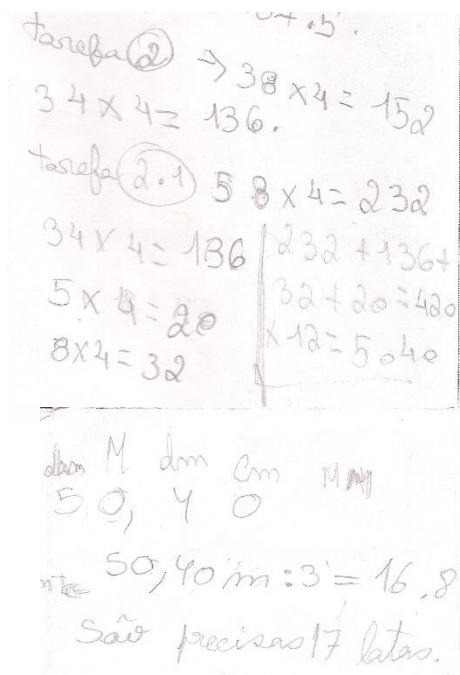 tarefa 2 → 38 × 4 = 152
34 × 4 = 136.
tarefa 2.1 58 × 4 = 232
34 × 4 = 136
5 × 4 = 20
8 × 4 = 32
232 + 136 +
32 + 20 = 420
× 12 = 5040
dam M dm cm
50, 4 0
50,40 m : 3 = 16.8
São precisas 17 latas.